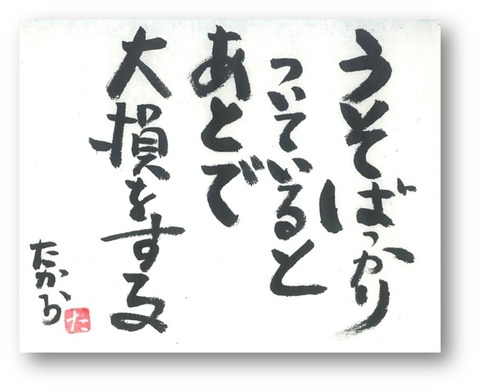 うそばっかり
ついていると
あとで
大損をする
たから
た